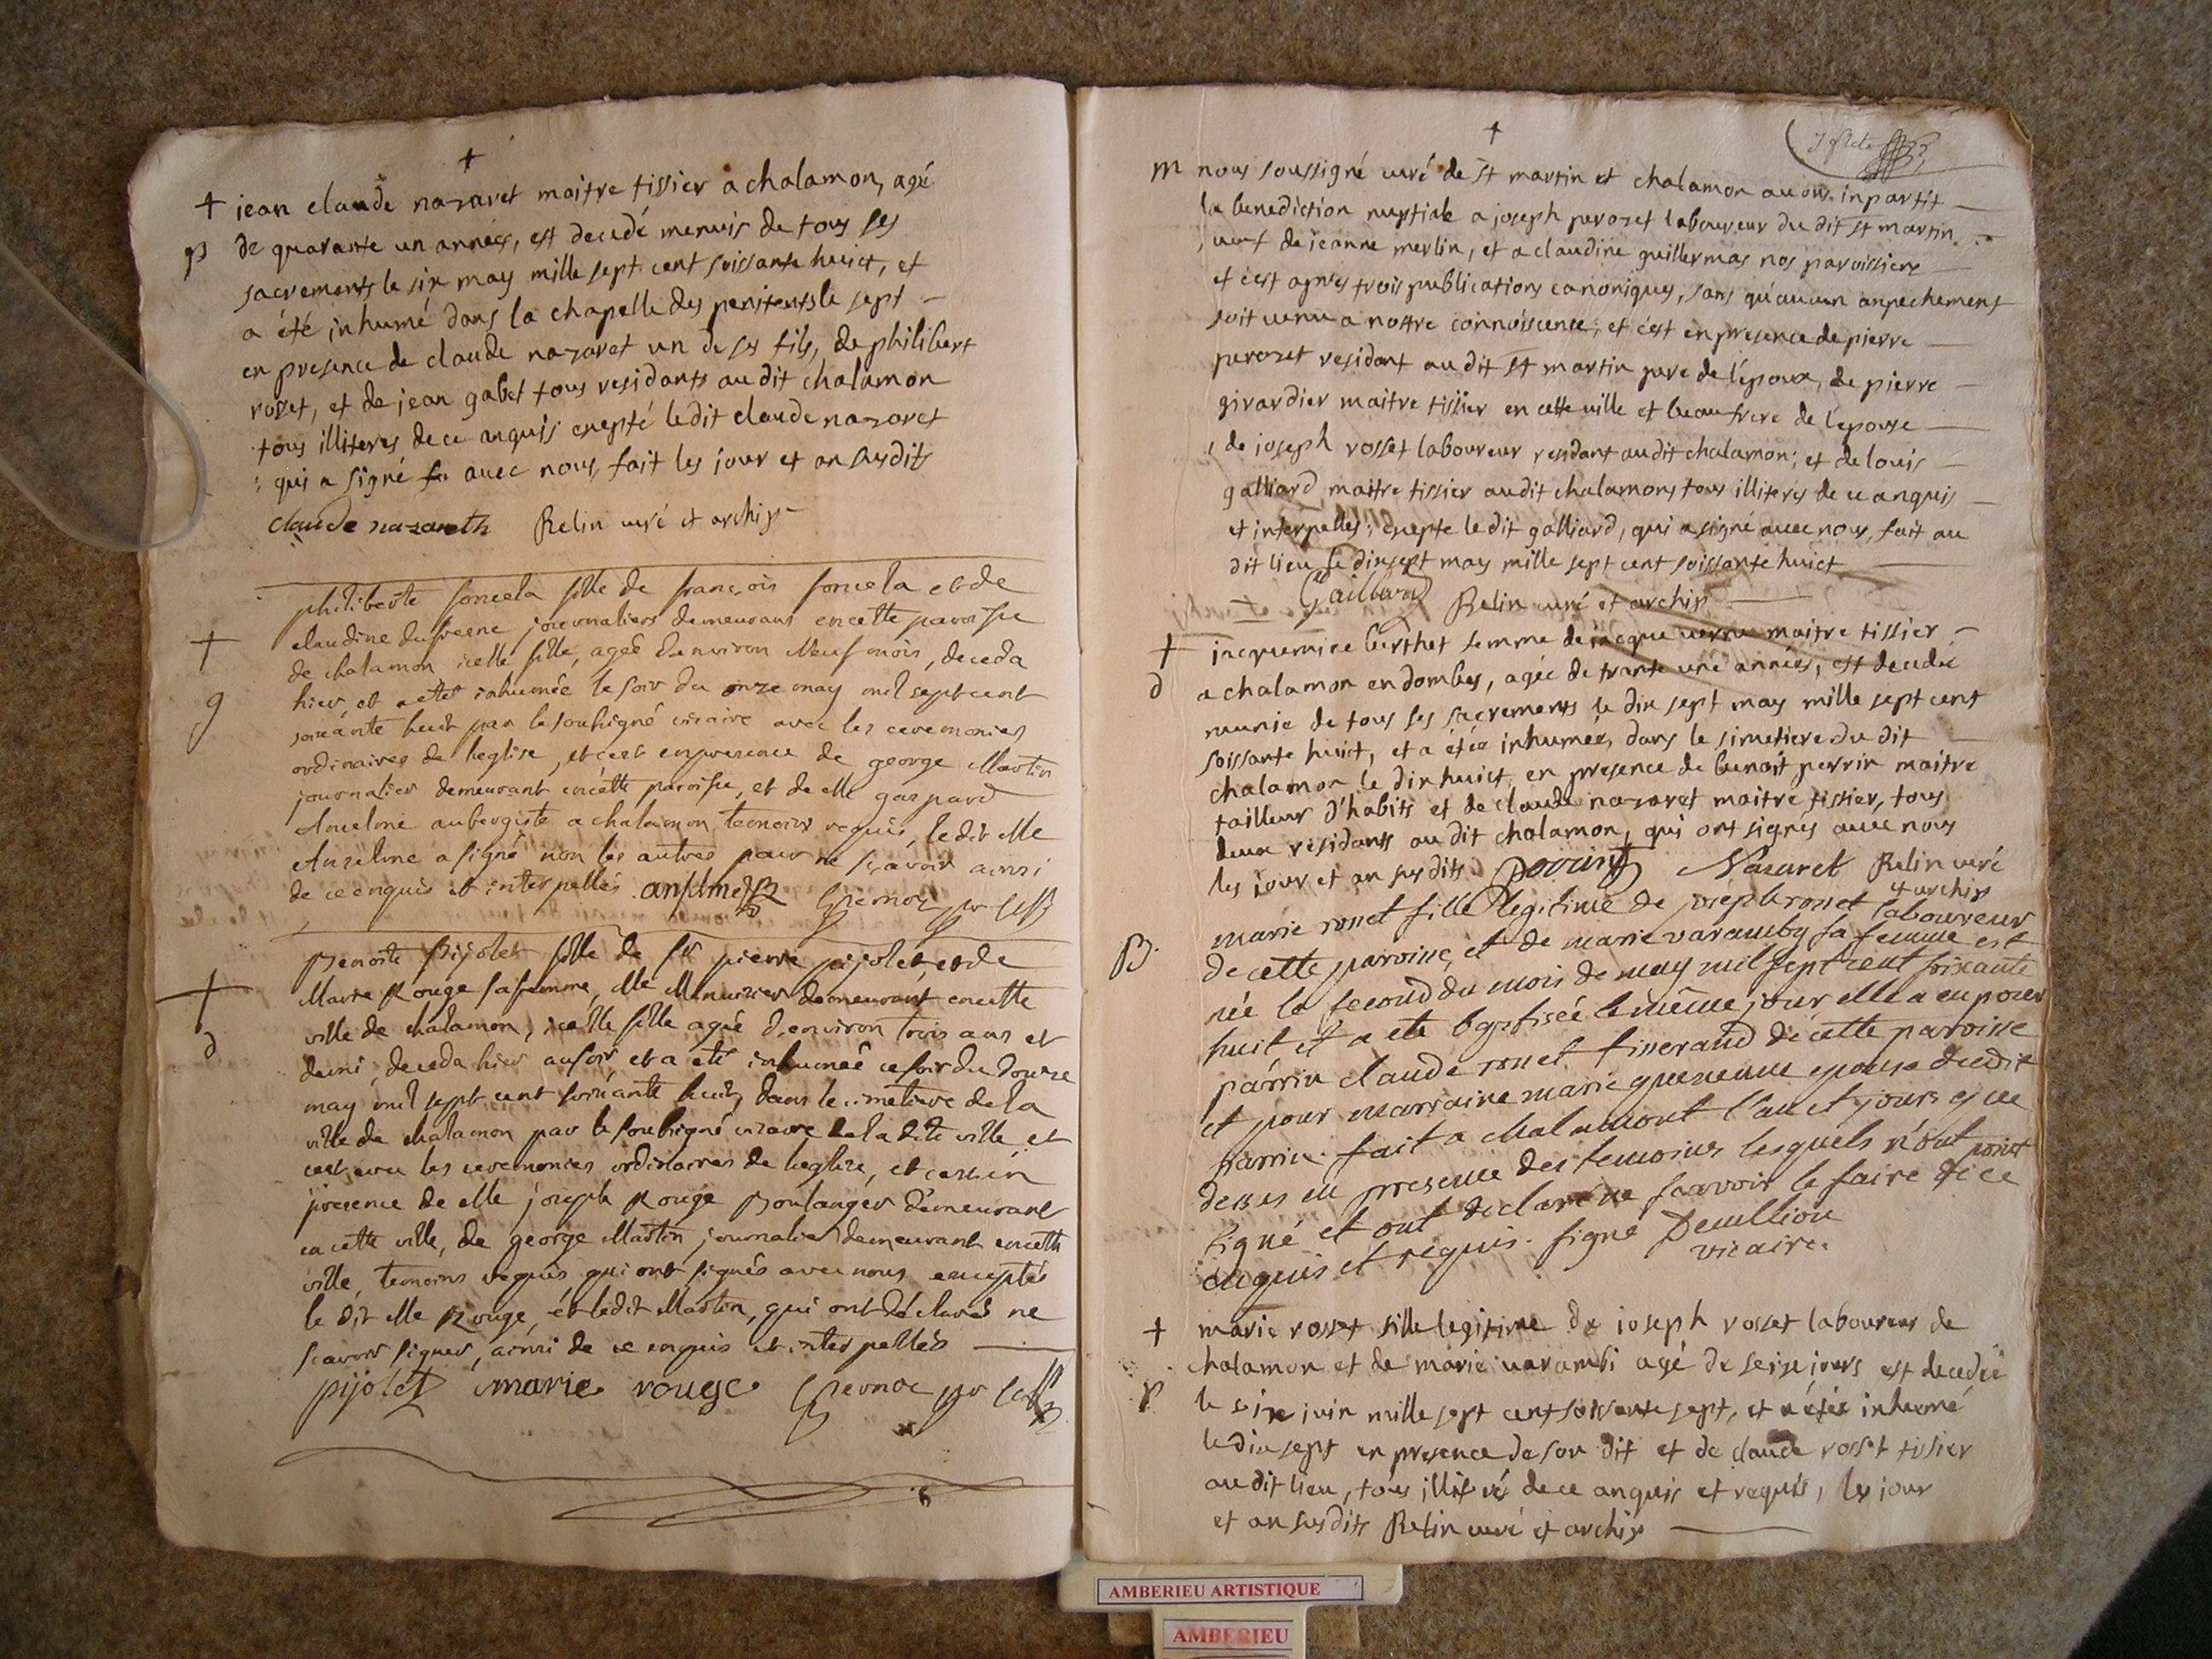 +
+ jean claude nazaret maitre tissier a chalamon, agé
de quarante un années, est decedé menuis de tous ses
sacrements le six may mille sept cent soissante huict, et
a été inhumé dans la chapelle des penitents le sept –
en presence de claude nazaret un de ses fils, de philibert
rosset, et de jean gabet tous residants au dit chalamon
tous illiteres de ce anquis exepté le dit claude nazaret
qui a signé avec nous, fait les jour et an susdits
claude nazareth Relin curé et archip –
philiberte foncela fille de françois foncela et de
claudine dufresne journaliers demeurans en cette paroisse
+
de chalamon icelle fille, ageé d'environ Neuf mois, deceda
hier et a eté inhumée le soir du onze may mil sept cent
g
soixante huit par le soussigné vicaire avec les ceremonies
ordinaires de l'eglise, et c'est en presence de george Martin
journalier demeurant en cette paroisse, et de Me gaspard
Anselme aubergiste a chalamon temoins requis, ledit Me
Anselme a signé non les autres pour ne sçavoir ainsi
de ce enquis et interpellés. anselme
Benoite Pijolet fille de Sr pierre pijolet, et de
+
Marie Rouge sa femme, Me Menuisier demeurant en cette
ville de chalamon, icelle fille ageé d'environ trois ans et
d
demi, deceda hier au soir, et a eté inhumeé ce soir du douze
may mil sept cent soixante huit, dans le cimetiere de la
ville de chalamon par le soussigné vicaire de la dite ville et
c'est avec les ceremonies ordinaires de l'eglise, et c'est en
presence de Me joseph Rouge Boulanger demeurant
en cette ville, de george Martin journalier demeurant en cette
ville, temoins requis qui ont signés avec nous exceptés
le dit Me Rouge, et ledit Martin, qui ont déclarés ne
scavoir signer, ainsi de ce enquis et interpellés
pijolet marie rouge
+
m nous soussigné curé de st martin et chalamon avons inpartit
la benediction nuptiale a joseph perozet laboureur du dit st martin
veuf de jeanne merlin, et a claudine guillermas nos paroissiens
et c'est apres trois publications canoniques, sans qu'aucun anpechement
soit venu a nostre connoissence; et c'est en presence de pierre
perozet residant au dit st martin pere de l'époux, de pierre
girardier maitre tissier en cette ville et beaufrere de l'epouse
, de joseph rosset laboureur residant audit chalamon; et de louis
galliard maitre tissier audit chalamon, tous illiteres de ce anquis
et interpelles; exepte le dit galliard, qui a signé avec nous, fait au
dit lieu le dixsept may mille sept cent soissante huict
Gaillard Relin curé et archip
+ jacquemine berthet femme de jacque verru maitre tissier –
d a chalamon en dombes, agée de trante une années, est decedée
munie de tous ses sacrements le dix sept may mille sept cent
soissante huict, et a étée inhumée, dans le simetiere du dit
chalamon le dixhuict, en presence de benoit perrin maitre
tailleur d'habits et de claude nazaret maitre tissier, tous
deux residants au dit chalamon, qui ont signés avec nous
les jour et an susdits. perrin Nazaret Relin curé
et archip
marie rosset fille legitime de joseph rosset laboureur
B. de cette paroisse, et de marie varamby sa femme est
née le second du mois de may mil sept cent soixante
huit et a ete baptisée le même jour elle a eu pour
parrin claude rosset tisserand de cette paroisse
et pour marraine marie epouse dudit
parrin. fait a chalamont l'an et jour que
dessus en presence des temoins lesquels n'ont point
signé et ont declaré ne scavoir le faire de ce
enquis et requis. signé Deullion
vicaire.
+ marie rosset fille legitime de joseph rosset laboureur de
chalamon et de marie varambi agé de seize jours est decedée
le six juin mille sept cent soissante sept, et a étée inhumé
le dix sept en presence de son dit et de claude rosset tisier
au dit lieu, tous illitérés de ce anquis et requis, les jour
et an susdits Relin curé et archip
AMBERIEU ARTISTIQUE
AMBERIEU